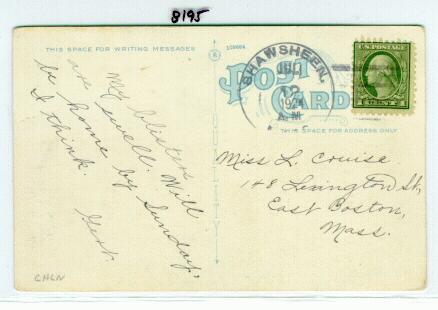 8195
THIS SPACE FOR WRITING MESSAGES
POST
CARD
SHAWSHEEN,
JUL
12
A.M
U.S. POSTAGE
1 CENT 1
THIS SPACE FOR ADDRESS ONLY
My blisters
are swell. Will
be home by Sunday,
I think.
Gert.
Miss L. Couise
148 Lexington St,
East Boston,
Mass.